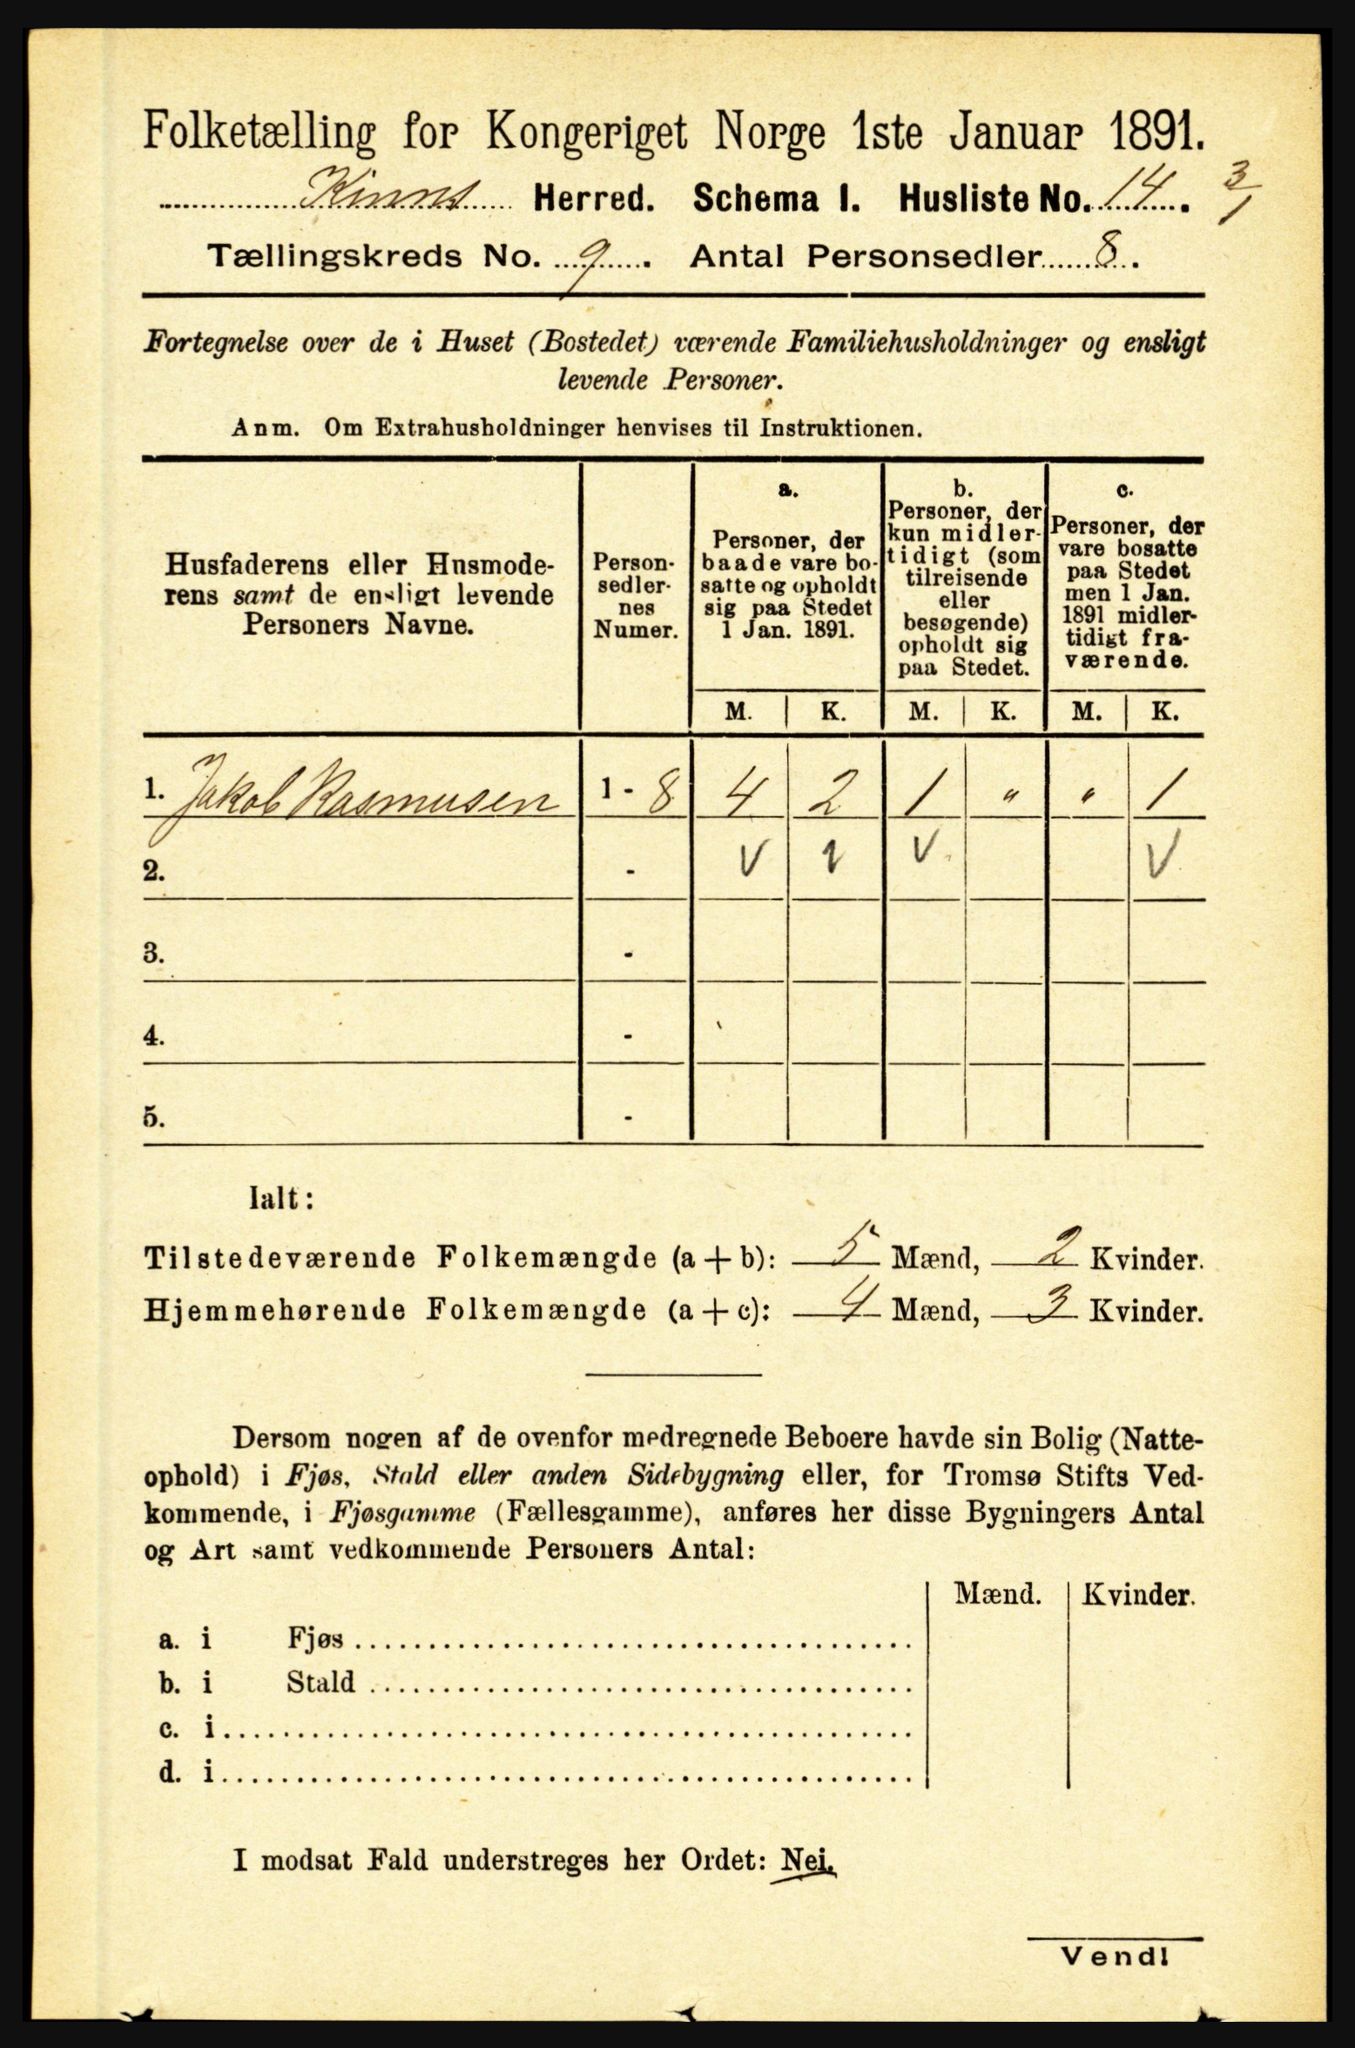 Folketælling for Kongeriget Norge 1ste Januar 1891.
Kinns Herred. Schema I. Husliste No. 14. 3/1
Tællingskreds No. 9. Antal Personsedler 8.
Fortegnelse over de i Huset (Bostedet) værende Familiehusholdninger og ensligt
levende Personer.
Anm. Om Extrahusholdninger henvises til Instruktionen.
Husfaderens eller Husmode-
rens samt de ensligt levende
Personers Navne.
Person-
sedler-
nes
Numer.
a.
Personer, der
baade vare bo-
satte og opholdt
sig paa Stedet
1 Jan. 1891.
b.
Personer, der
kun midler-
tidigt (som
tilreisende
eller
besøgende)
opholdt sig
paa Stedet.
c.
Personer, der
vare bosatte
paa Stedet
men 1 Jan.
1891 midler-
tidigt fra-
værende.
M. K. M. K. M. K.
1. Jakob Rasmusen 1 - 8 4 2 1 " " 1
2. - V V V V
3. -
4. -
5. -
Ialt:
Tilstedeværende Folkemængde (a + b): 5 Mænd, 2 Kvinder.
Hjemmehørende Folkemængde (a + c): 4 Mænd, 3 Kvinder.
Dersom nogen af de ovenfor medregnede Beboere havde sin Bolig (Natte-
ophold) i Fjøs, Stald eller anden Sidebygning eller, for Tromsø Stifts Ved-
kommende, i Fjøsgamme (Fællesgamme), anføres her disse Bygningers Antal
og Art samt vedkommende Personers Antal:
Mænd. Kvinder.
a. i Fjøs
b. i Stald
c. i
d. i
I modsat Fald understreges her Ordet: Nei.
Vend!